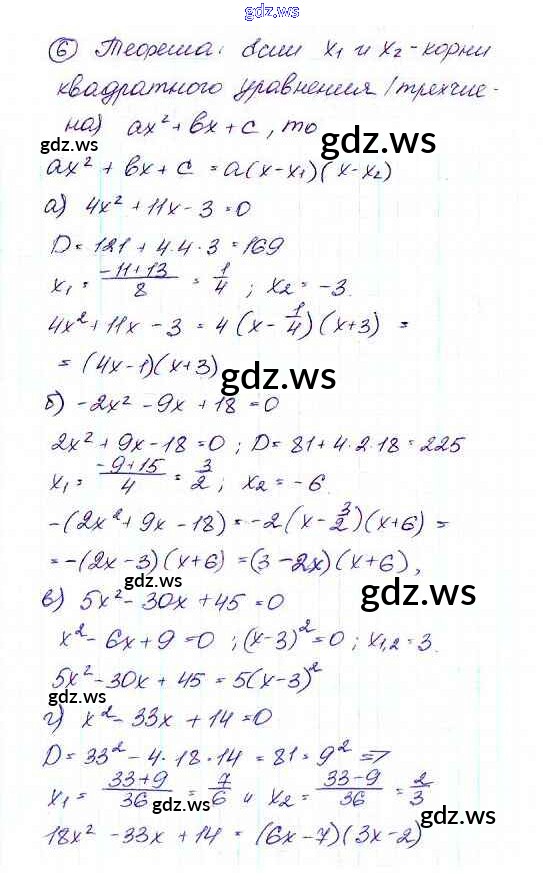 gdz.ws
⑥ Теорема: Если x₁ и x₂ - корни
квадратного уравнения (трехчле-
на) ax² + bx + c, то
gdz.ws
gdz.ws
ax² + bx + c = a(x - x₁)(x - x₂)
а) 4x² + 11x - 3 = 0
D = 121 + 4·4·3 = 169
x₁ = (-11+13)/8 = 1/4 ; x₂ = -3.
4x² + 11x - 3 = 4(x - 1/4)(x + 3) =
= (4x - 1)(x + 3)
gdz.ws
б) -2x² - 9x + 18 = 0
2x² + 9x - 18 = 0 ; D = 81 + 4·2·18 = 225
x₁ = (-9+15)/4 = 3/2 ; x₂ = -6.
-(2x² + 9x - 18) = -2(x - 3/2)(x + 6) =
= -(2x - 3)(x + 6) = (3 - 2x)(x + 6),
gdz.ws
gdz.ws
в) 5x² - 30x + 45 = 0
x² - 6x + 9 = 0 ; (x - 3)² = 0 ; x₁,₂ = 3.
5x² - 30x + 45 = 5(x - 3)²
г) x² - 33x + 14 = 0
D = 33² - 4·18·14 = 81 = 9² =>
x₁ = (33+9)/36 = 7/6 и x₂ = (33-9)/36 = 2/3
18x² - 33x + 14 = (6x - 7)(3x - 2)
gdz.ws
gdz.ws